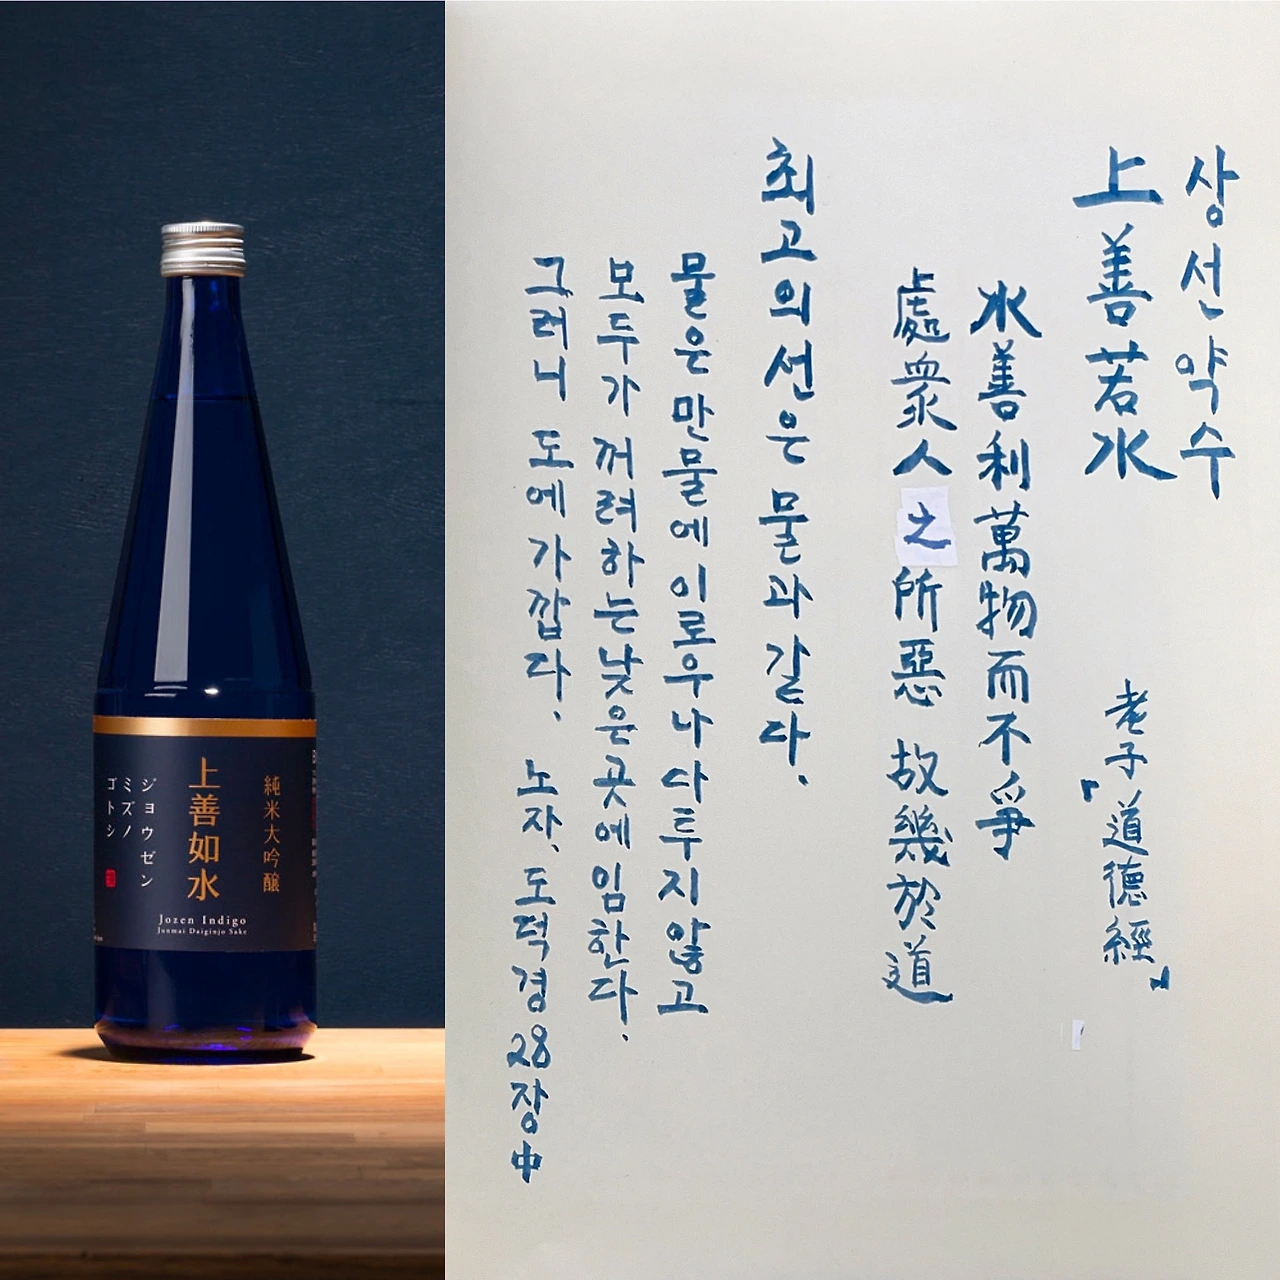 純米大吟醸
上善如水
ジョウゼン
ミズノ
ゴトシ
Jozen Indigo
Junmai Daiginjo Sake
상선약수
上善若水
老子『道德經』
水善利萬物而不爭
處衆人之所惡 故幾於道
최고의 선은 물과 같다.
물은 만물에 이로우나 다투지 않고
모두가 꺼려하는 낮은 곳에 임한다.
그러니 도에 가깝다. 노자, 도덕경 28장 中